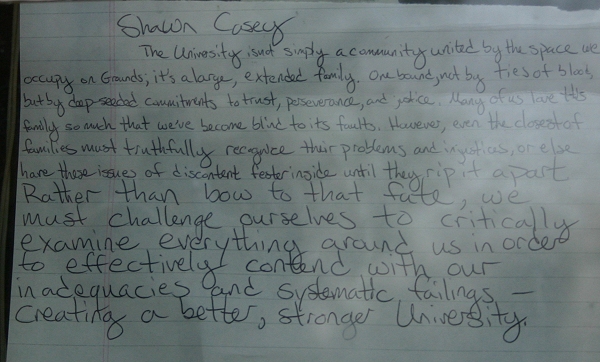 Shawn Casey
The University isn't simply a community united by the space we
occupy on Grounds; it's a large, extended family. One bound, not by ties of blood,
but by deep-seeded commitments to trust, perseverance, and justice. Many of us love this
family so much that we've become blind to its faults. However, even the closest of
families must truthfully recognize their problems and injustices, or else
have these issues of discontent fester inside until they rip it apart
Rather than bow to that fate, we
must challenge ourselves to critically
examine everything around us in order
to effectively contend with our
inadequacies and systematic failings –
creating a better, stronger University.